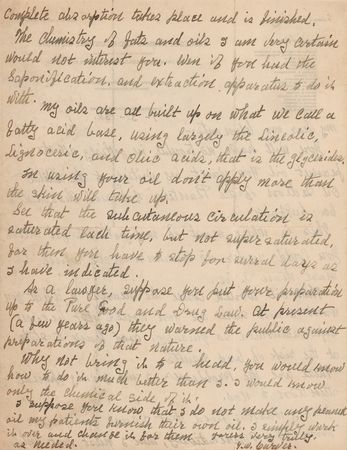 Complete absorption takes place and is finished.
The chemistry of fats and oils I am very certain
would not interest you. Even if you had the
saponification, and extraction apparatus to do it
with.
My oils are all built up on what we call a
fatty acid base, using largely the Lineolic,
Lignoceric, and Oleic acids, that is the glycerides.
In using your oil don't apply more than
the skin will take up.
See that the subcutaneous circulation is
saturated each time, but not supersaturated,
for then you have to stop for several days as
I have indicated.
As a lawyer, suppose you put your preparation
up to the Pure Food and Drug Law. At present
(a few years ago) they warned the public against
preparations of that nature.
Why not bring it to a head, you would know
how to do it much better than I. I would know
only the chemical side of it.
I suppose you know that I do not make any peanut
oil my patients furnish their own oil. I simply work
it over and change it for them
as needed.
yours very truly,
G.W. Carver.